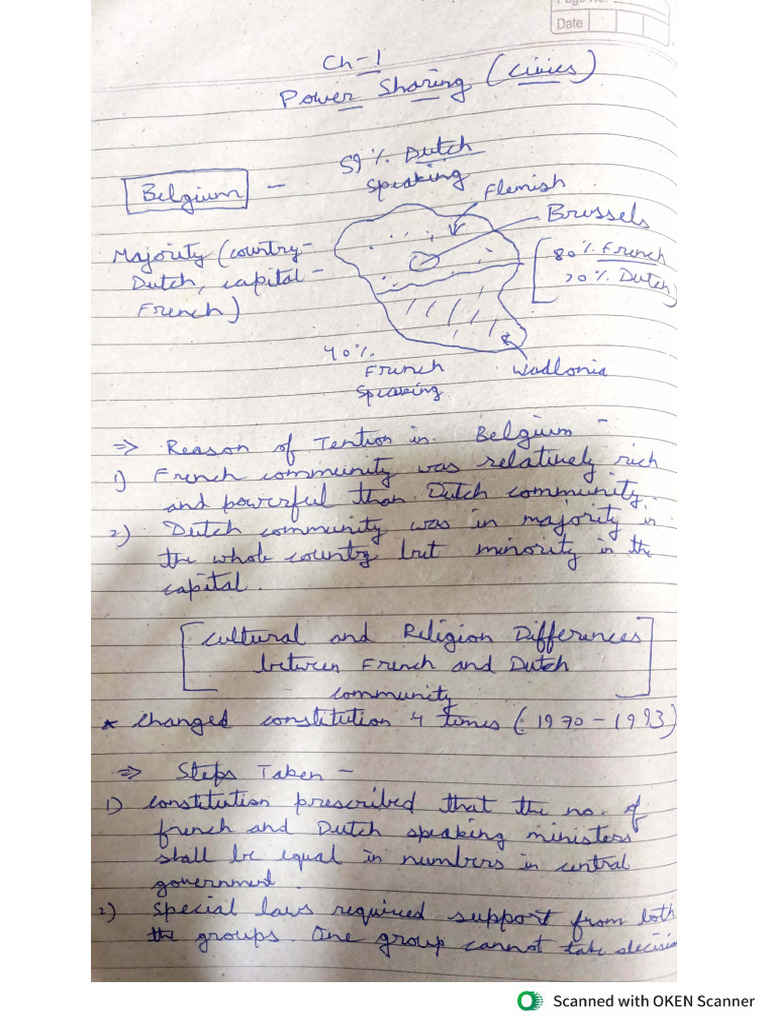 Page No.
Date
Ch-1
Power Sharing (civics)
59% Dutch
Speaking
Belgium -
Flemish
Brussels
Majority (country-
Dutch, capital-
French)
80% French
20% Dutch
40%
French
Speaking
Wadlonia
⇒ Reason of Tention in Belgium -
1) French community was relatively rich
and powerful than Dutch community.
2) Dutch community was in majority in
the whole country but minority in the
capital.
[cultural and Religion Differences
between French and Dutch
community]
* changed constitution 4 times (1970-1993)
⇒ Steps Taken -
1) constitution prescribed that the no. of
french and Dutch speaking ministers
shall be equal in numbers in central
government.
2) Special laws required support from both
the groups. One group cannot take decisio
Scanned with OKEN Scanner